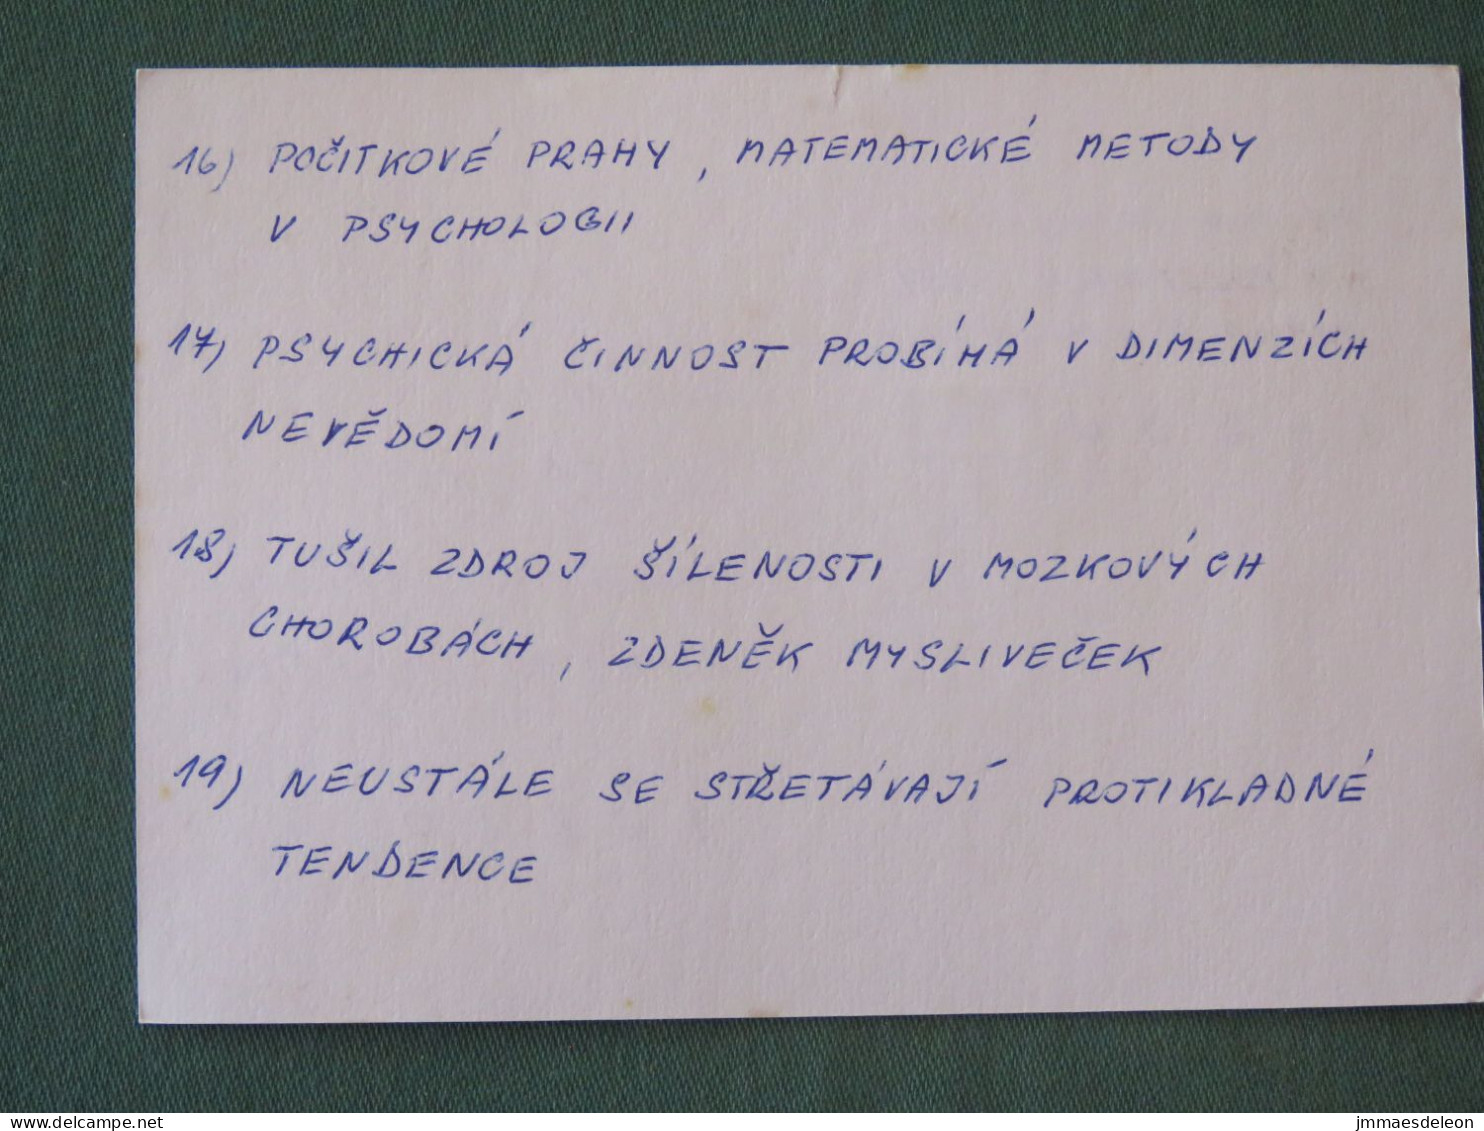 16) POČITKOVÉ PRAHY, MATEMATICKÉ METODY
V PSYCHOLOGII
17) PSYCHICKÁ ČINNOST PROBÍHÁ V DIMENZÍCH
NEVĚDOMÍ
18) TUŠIL ZDROJ ŠÍLENOSTI V MOZKOVÝCH
CHOROBÁCH, ZDENĚK MYSLIVEČEK
19) NEUSTÁLE SE STŘETÁVAJÍ PROTIKLADNÉ
TENDENCE
www.delcampe.net
jmmaesdeleon